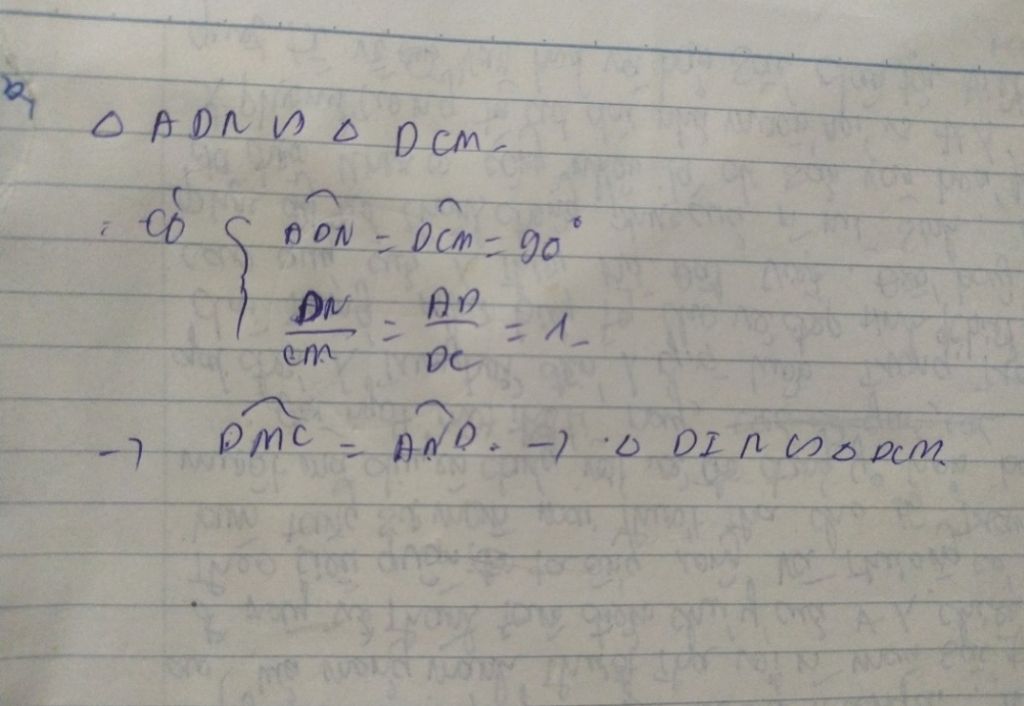 b,
△ ADN ∽ △ DCM.
: Có { \widehat{ADN} = \widehat{DCM} = 90°
DN/CM = AD/DC = 1.
→ \widehat{DMC} = \widehat{AND}. → △ DIN ∽ △ DCM.